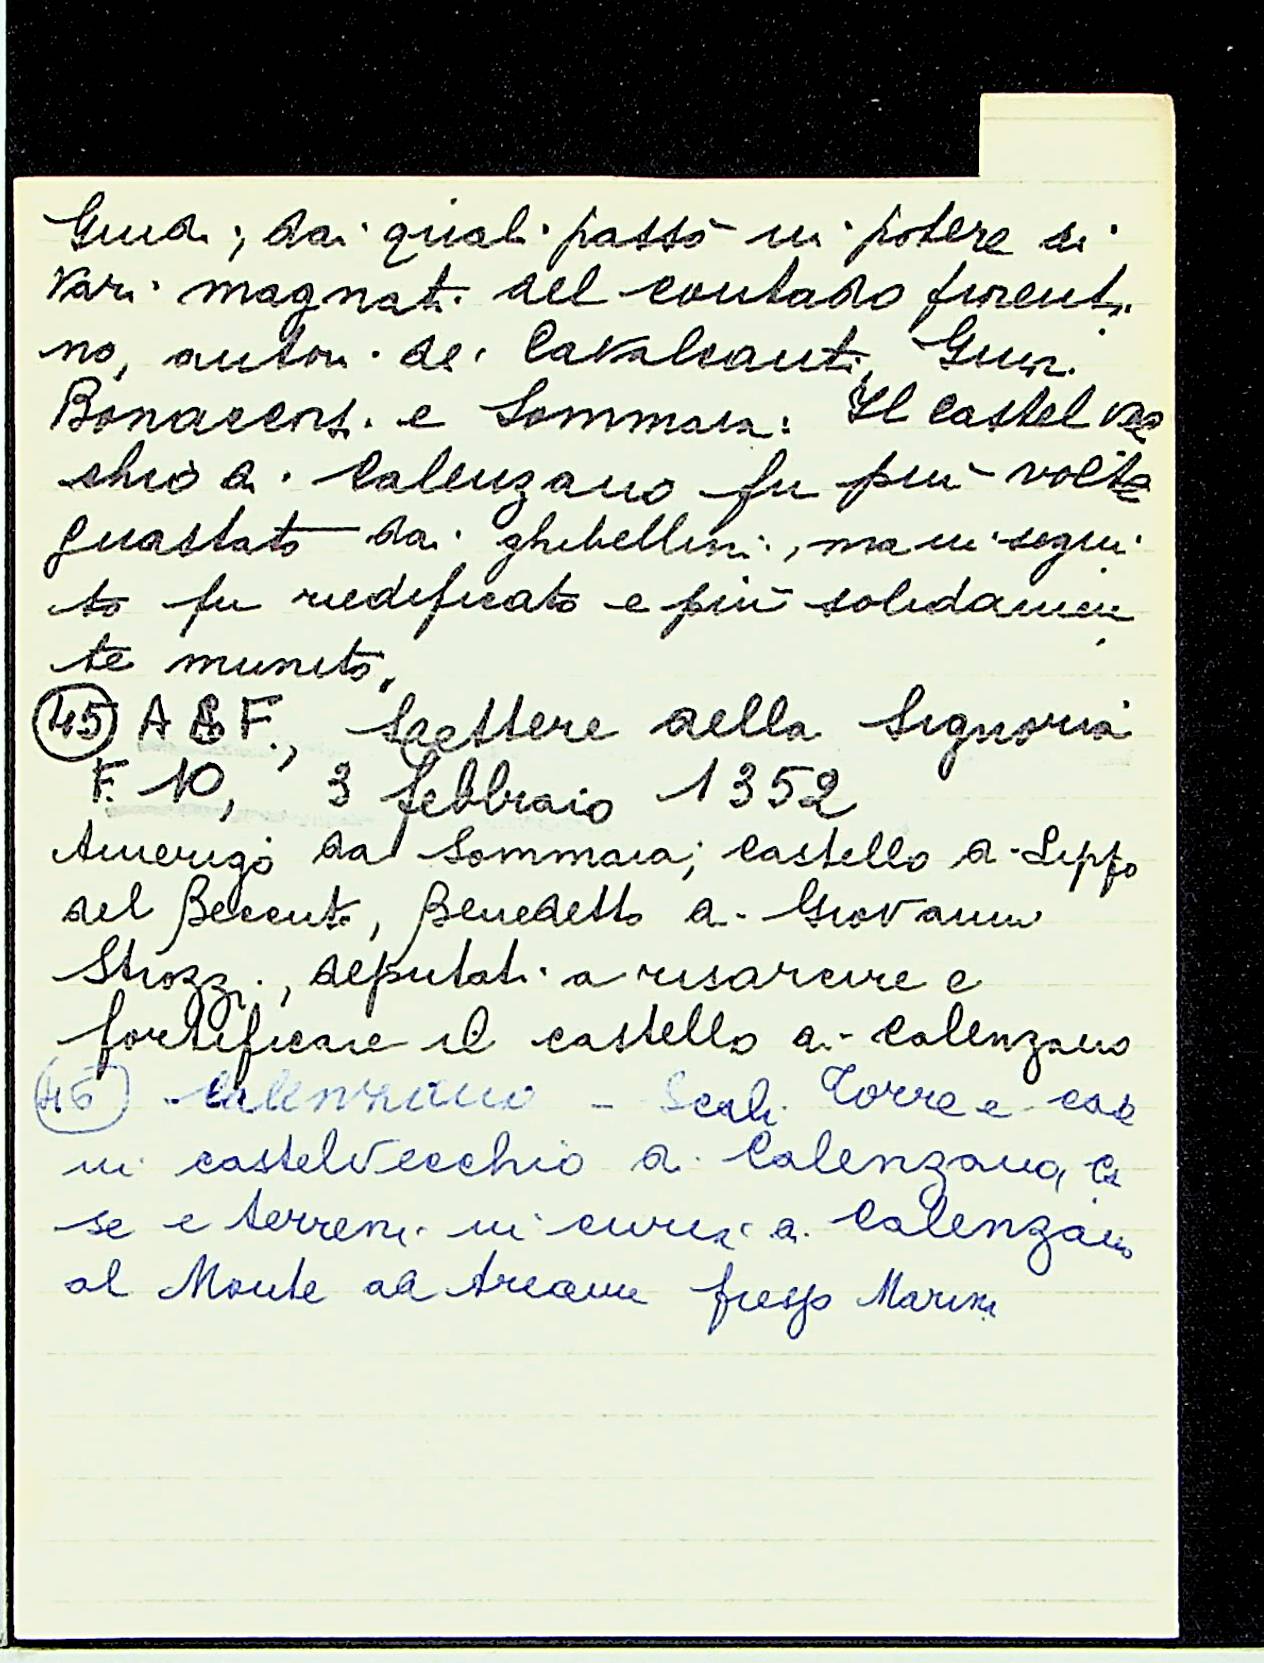 Guidi; dai quali passò in potere di
vari magnati del contado fiorenti
no, autori dei Cavalcanti,
Bonaccorsi e Sommaia. Il castel vec
chio di Calenzano fu più volte
guastato dai ghibellini, ma in segui
to fu riedificato e più solidamen
te munito.
(45) A S F., Lettere della Signoria
F. 10, 3 febbraio 1352
Amerigo da Sommaia; castello di Lippo
del Beccuto, Benedetto di Giovanni
Strozzi, deputati a risarcire e
fortificare il castello di Calenzano
(46) Calenzano - Scali Torre e case
in castelvecchio di Calenzano, Ca
se e terreni in curia di Calenzano
al Monte ad